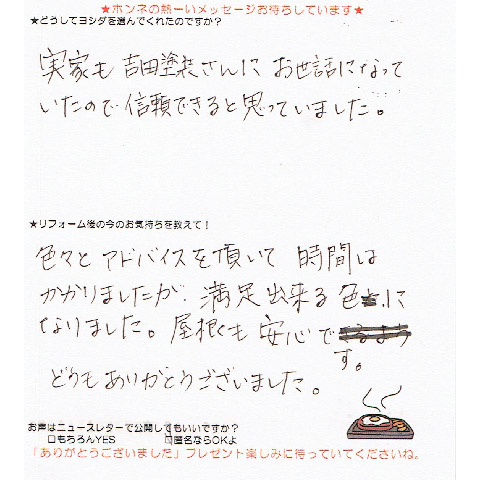 ★ホンネの熱ーいメッセージお待ちしています★
★どうしてヨシダを選んでくれたのですか？
実家も吉田塗装さんに お世話になって
いたので信頼できると思っていました。
★リフォーム後の今のお気持ちを教えて！
色々とアドバイスを頂いて 時間は
かかりましたが、満足出来る色に
なりました。屋根も安心で
す。
どうもありがとうございました。
お声はニュースレターで公開してもいいですか？
□もろろんYES □匿名ならOKよ
「ありがとうございました」プレゼント楽しみに待っていてくださいね。